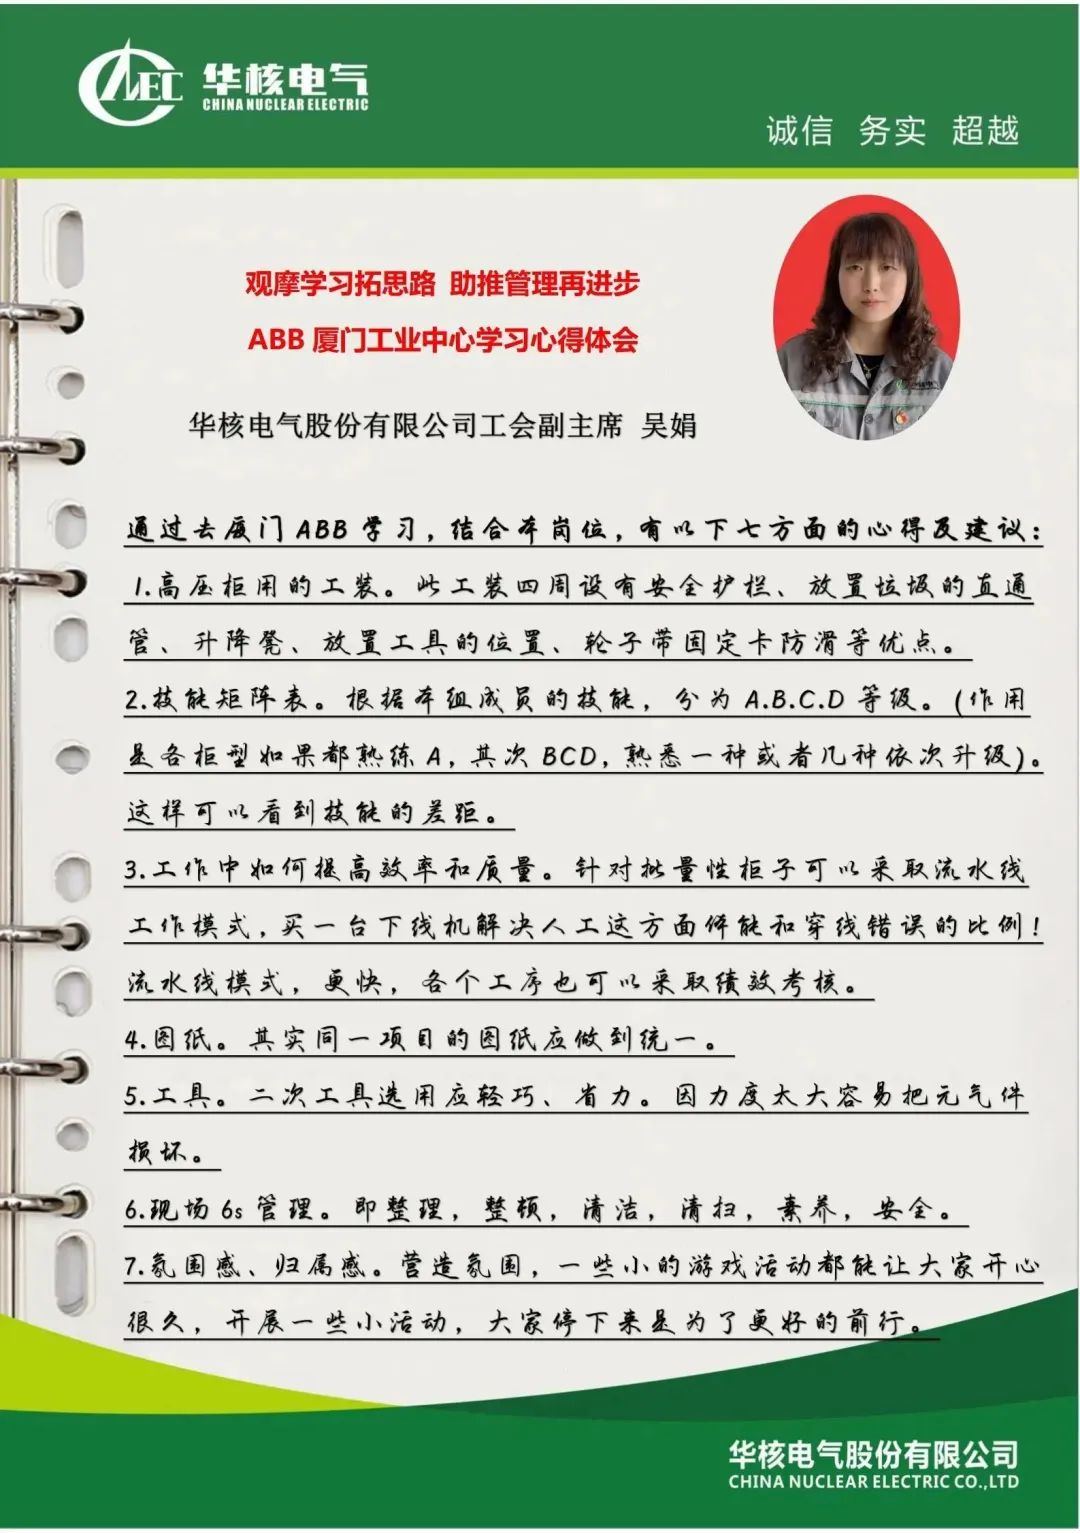 CNEC 华核电气
CHINA NUCLEAR ELECTRIC
诚信 务实 超越
观摩学习拓思路 助推管理再进步
ABB 厦门工业中心学习心得体会
华核电气股份有限公司工会副主席 吴娟
华核电气
通过去厦门ABB学习,结合本岗位,有以下七方面的心得及建议:
1.高压柜用的工装。此工装四周设有安全护栏、放置垃圾的直通
管、升降凳、放置工具的位置、轮子带固定卡防滑等优点。
2.技能矩阵表。根据本组成员的技能,分为A.B.C.D等级。(作用
是各柜型如果都熟练A,其次BCD,熟悉一种或者几种依次升级)。
这样可以看到技能的差距。
3.工作中如何提高效率和质量。针对批量性柜子可以采取流水线
工作模式,买一台下线机解决人工这方面体能和穿线错误的比例!
流水线模式,更快,各个工序也可以采取绩效考核。
4.图纸。其实同一项目的图纸应做到统一。
5.工具。二次工具选用应轻巧、省力。因力度太大容易把元气件
损坏。
6.现场6s管理。即整理,整顿,清洁,清扫,素养,安全。
7.氛围感、归属感。营造氛围,一些小的游戏活动都能让大家开心
很久,开展一些小活动,大家停下来是为了更好的前行。
华核电气股份有限公司
CHINA NUCLEAR ELECTRIC CO.,LTD